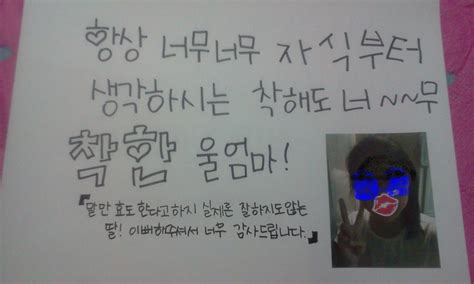 항상 너무너무 자식부터
생각하시는 착해도 너~~무
착한 울엄마!
『말만 효도한다고하지 실제론 잘하지도않는
딸! 이뻐해주셔서 너무 감사드립니다.』